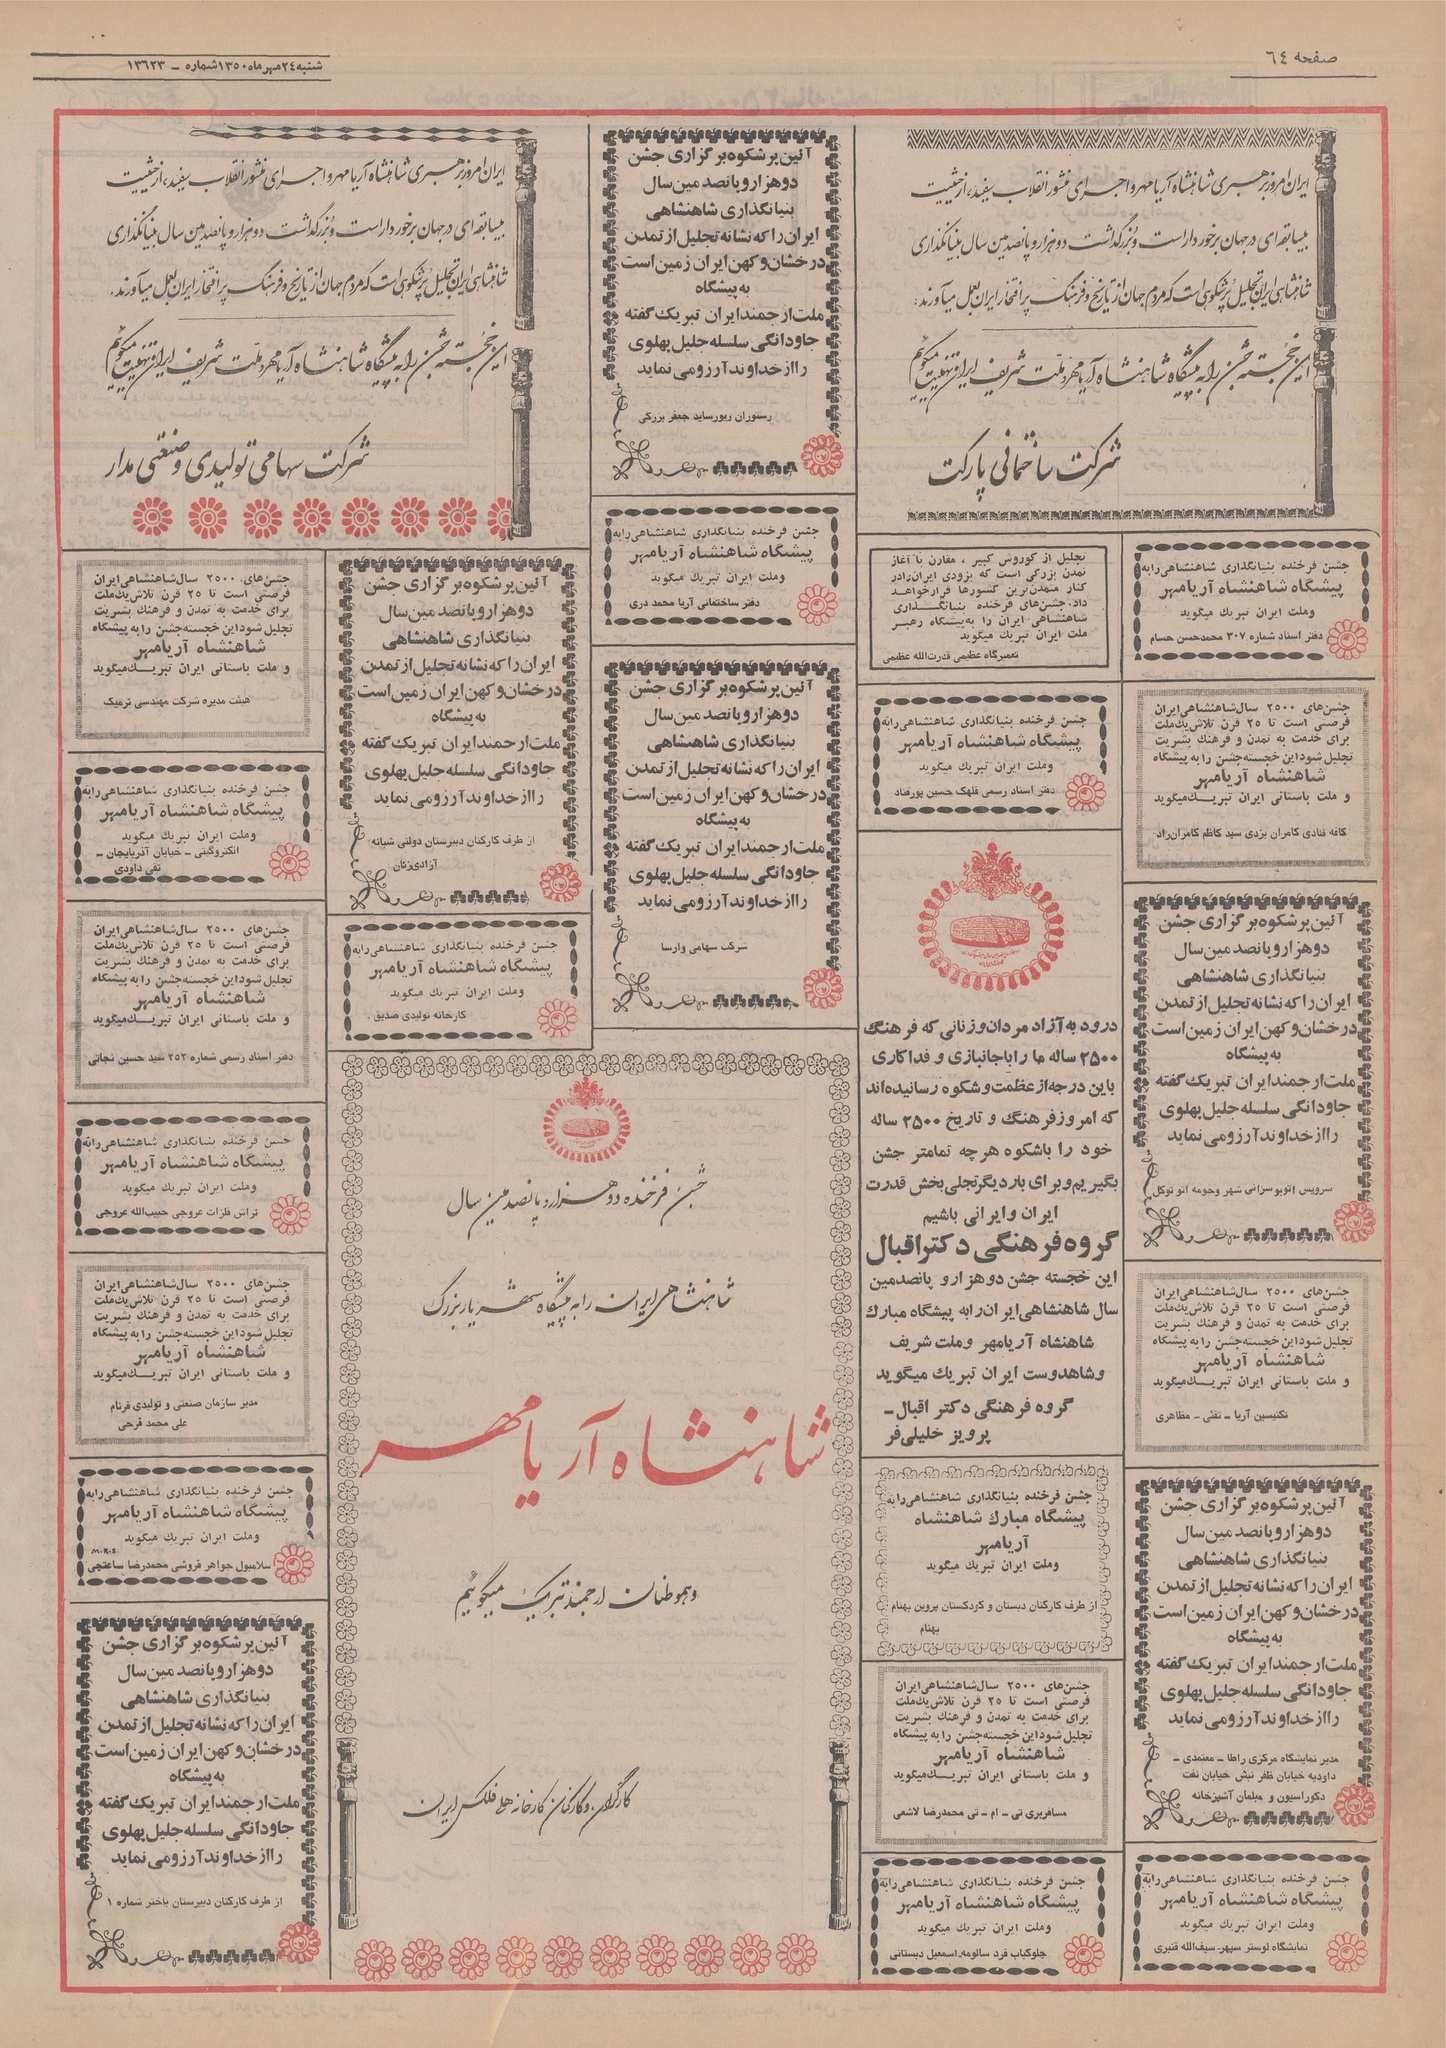 صفحه ٦٤
شنبه ٢٤ مهر ماه ١٣٥٠ شماره ـ ١٣٦٢٣
ایران امروز برهبری شاهنشاه آریامهر و اجرای منشور انقلاب سفید، از حیثیت
بیسابقه‌ای در جهان برخوردار است و بزرگداشت دوهزار و پانصدمین سال بنیانگذاری
شاهنشاهی ایران تجلیل پرشکوهی است که مردم جهان از تاریخ و فرهنگ پر افتخار ایران بعمل میآورند.
این خجسته جشن را به پیشگاه شاهنشاه آریامهر و ملت شریف ایران تهنیت میگوئیم
شرکت ساختمانی پارکت
آئین پرشکوه برگزاری جشن
دوهزار و پانصدمین سال
بنیانگذاری شاهنشاهی
ایران را که نشانه تجلیل از تمدن
درخشان و کهن ایران زمین است
به پیشگاه
ملت ارجمند ایران تبریک گفته
جاودانگی سلسله جلیل پهلوی
را از خداوند آرزو می نماید
رستوران ریورساید جعفر بزرگی
ایران امروز برهبری شاهنشاه آریامهر و اجرای منشور انقلاب سفید، از حیثیت
بیسابقه‌ای در جهان برخوردار است و بزرگداشت دوهزار و پانصدمین سال بنیانگذاری
شاهنشاهی ایران تجلیل پرشکوهی است که مردم جهان از تاریخ و فرهنگ پر افتخار ایران بعمل میآورند.
این خجسته جشن را به پیشگاه شاهنشاه آریامهر و ملت شریف ایران تهنیت میگوئیم
شرکت سهامی تولیدی و صنعتی مدار
جشن فرخنده بنیانگذاری شاهنشاهی را به
پیشگاه شاهنشاه آریامهر
و ملت ایران تبریک میگوید
دفتر اسناد شماره ٣٠٧ محمدحسن حسام
جشن‌های ٢٥٠٠ سال شاهنشاهی ایران
فرصتی است تا ٢٥ قرن تلاش یک ملت
برای خدمت به تمدن و فرهنگ بشریت
تجلیل شود این خجسته جشن را به پیشگاه
شاهنشاه آریامهر
و ملت باستانی ایران تبریک میگوید
کافه قنادی کامران یزدی سید کاظم کامران‌راد
آئین پرشکوه برگزاری جشن
دوهزار و پانصدمین سال
بنیانگذاری شاهنشاهی
ایران را که نشانه تجلیل از تمدن
درخشان و کهن ایران زمین است
به پیشگاه
ملت ارجمند ایران تبریک گفته
جاودانگی سلسله جلیل پهلوی
را از خداوند آرزو می نماید
سرویس اتوبوسرانی شهر وحومه اتو توکل
جشن‌های ٢٥٠٠ سال شاهنشاهی ایران
فرصتی است تا ٢٥ قرن تلاش یک ملت
برای خدمت به تمدن و فرهنگ بشریت
تجلیل شود این خجسته جشن را به پیشگاه
شاهنشاه آریامهر
و ملت باستانی ایران تبریک میگوید
تکنیسین آریا ـ تقئی ـ مظاهری
آئین پرشکوه برگزاری جشن
دوهزار و پانصدمین سال
بنیانگذاری شاهنشاهی
ایران را که نشانه تجلیل از تمدن
درخشان و کهن ایران زمین است
به پیشگاه
ملت ارجمند ایران تبریک گفته
جاودانگی سلسله جلیل پهلوی
را از خداوند آرزو می نماید
مدیر نمایشگاه مرکزی راطا ـ معتمدی ـ
داودیه خیابان ظفر نبش خیابان نفت
دکوراسیون و مبلمان آشپزخانه
جشن فرخنده بنیانگذاری شاهنشاهی را به
پیشگاه شاهنشاه آریامهر
و ملت ایران تبریک میگوید
نمایشگاه لوستر سپهر ـ سیف‌الله قنبری
تجلیل از کوروش کبیر ، مقارن با آغاز
تمدن بزرگی است که بزودی ایران را در
کنار متمدن‌ترین کشورها قرار خواهد
داد. جشن‌های فرخنده بنیانگذاری
شاهنشاهی ایران را به پیشگاه رهبر
ملت ایران تبریک میگوید
تعمیرگاه عظیمی قدرت‌الله عظیمی
جشن فرخنده بنیانگذاری شاهنشاهی را به
پیشگاه شاهنشاه آریامهر
و ملت ایران تبریک میگوید
دفتر اسناد رسمی قلهک حسین پورقناد
درود به آزاد مردان و زنانی که فرهنگ
٢٥٠٠ ساله ما را با جانبازی و فداکاری
باین درجه از عظمت و شکوه رسانیده‌اند
که امروز فرهنگ و تاریخ ٢٥٠٠ ساله
خود را باشکوه هر چه تمامتر جشن
بگیریم و برای بار دیگر تجلی بخش قدرت
ایران و ایرانی باشیم
گروه فرهنگی دکتر اقبال
این خجسته جشن دوهزار و پانصدمین
سال شاهنشاهی ایران را به پیشگاه مبارک
شاهنشاه آریامهر و ملت شریف
و شاهدوست ایران تبریک میگوید
گروه فرهنگی دکتر اقبال ـ
پرویز خلیلی‌فر
جشن فرخنده بنیانگذاری شاهنشاهی را به
پیشگاه مبارک شاهنشاه
آریامهر
و ملت ایران تبریک میگوید
از طرف کارکنان دبستان و کودکستان پروین بهنام
بهنام
جشن‌های ٢٥٠٠ سال شاهنشاهی ایران
فرصتی است تا ٢٥ قرن تلاش یک ملت
برای خدمت به تمدن و فرهنگ بشریت
تجلیل شود این خجسته جشن را به پیشگاه
شاهنشاه آریامهر
و ملت باستانی ایران تبریک میگوید
مسافربری تی ـ ام ـ تی محمدرضا لاشعی
جشن فرخنده بنیانگذاری شاهنشاهی را به
پیشگاه شاهنشاه آریامهر
و ملت ایران تبریک میگوید
چلوکباب فرد سالومه ـ اسمعیل دبستانی
جشن فرخنده بنیانگذاری شاهنشاهی را به
پیشگاه شاهنشاه آریامهر
و ملت ایران تبریک میگوید
دفتر ساختمانی آریا محمد دری
آئین پرشکوه برگزاری جشن
دوهزار و پانصدمین سال
بنیانگذاری شاهنشاهی
ایران را که نشانه تجلیل از تمدن
درخشان و کهن ایران زمین است
به پیشگاه
ملت ارجمند ایران تبریک گفته
جاودانگی سلسله جلیل پهلوی
را از خداوند آرزو می نماید
شرکت سهامی وارسا
آئین پرشکوه برگزاری جشن
دوهزار و پانصدمین سال
بنیانگذاری شاهنشاهی
ایران را که نشانه تجلیل از تمدن
درخشان و کهن ایران زمین است
به پیشگاه
ملت ارجمند ایران تبریک گفته
جاودانگی سلسله جلیل پهلوی
را از خداوند آرزو می نماید
از طرف کارکنان دبیرستان دولتی شبانه
آزادی زنان
جشن فرخنده بنیانگذاری شاهنشاهی را به
پیشگاه شاهنشاه آریامهر
و ملت ایران تبریک میگوید
کارخانه تولیدی صدیق .
جشن فرخنده دوهزار و پانصدمین سال
شاهنشاهی ایران را به پیشگاه شهریار بزرگ
شاهنشاه آریامهر
و هموطنان ارجمند تبریک میگوئیم
کارگران و کارکنان کارخانه هلی فلکس ایران
جشن‌های ٢٥٠٠ سال شاهنشاهی ایران
فرصتی است تا ٢٥ قرن تلاش یک ملت
برای خدمت به تمدن و فرهنگ بشریت
تجلیل شود این خجسته جشن را به پیشگاه
شاهنشاه آریامهر
و ملت باستانی ایران تبریک میگوید
هیئت مدیره شرکت مهندسی ترمیک
جشن فرخنده بنیانگذاری شاهنشاهی را به
پیشگاه شاهنشاه آریامهر
و ملت ایران تبریک میگوید
الکتروگیتی ـ خیابان آذربایجان ـ
تقی داودی
جشن‌های ٢٥٠٠ سال شاهنشاهی ایران
فرصتی است تا ٢٥ قرن تلاش یک ملت
برای خدمت به تمدن و فرهنگ بشریت
تجلیل شود این خجسته جشن را به پیشگاه
شاهنشاه آریامهر
و ملت باستانی ایران تبریک میگوید
دفتر اسناد رسمی شماره ٢٥٢ سید حسین نجاتی
جشن فرخنده بنیانگذاری شاهنشاهی را به
پیشگاه شاهنشاه آریامهر
و ملت ایران تبریک میگوید
تراش فلزات عروجی حبیب‌الله عروجی
جشن‌های ٢٥٠٠ سال شاهنشاهی ایران
فرصتی است تا ٢٥ قرن تلاش یک ملت
برای خدمت به تمدن و فرهنگ بشریت
تجلیل شود این خجسته جشن را به پیشگاه
شاهنشاه آریامهر
و ملت باستانی ایران تبریک میگوید
مدیر سازمان صنعتی و تولیدی فرنام
علی محمد فرحی
جشن فرخنده بنیانگذاری شاهنشاهی را به
پیشگاه شاهنشاه آریامهر
و ملت ایران تبریک میگوید
M.R.S
سلامبول جواهر فروشی محمدرضا ساعتچی
آئین پرشکوه برگزاری جشن
دوهزار و پانصدمین سال
بنیانگذاری شاهنشاهی
ایران را که نشانه تجلیل از تمدن
درخشان و کهن ایران زمین است
به پیشگاه
ملت ارجمند ایران تبریک گفته
جاودانگی سلسله جلیل پهلوی
را از خداوند آرزو می نماید
از طرف کارکنان دبیرستان باختر شماره ١